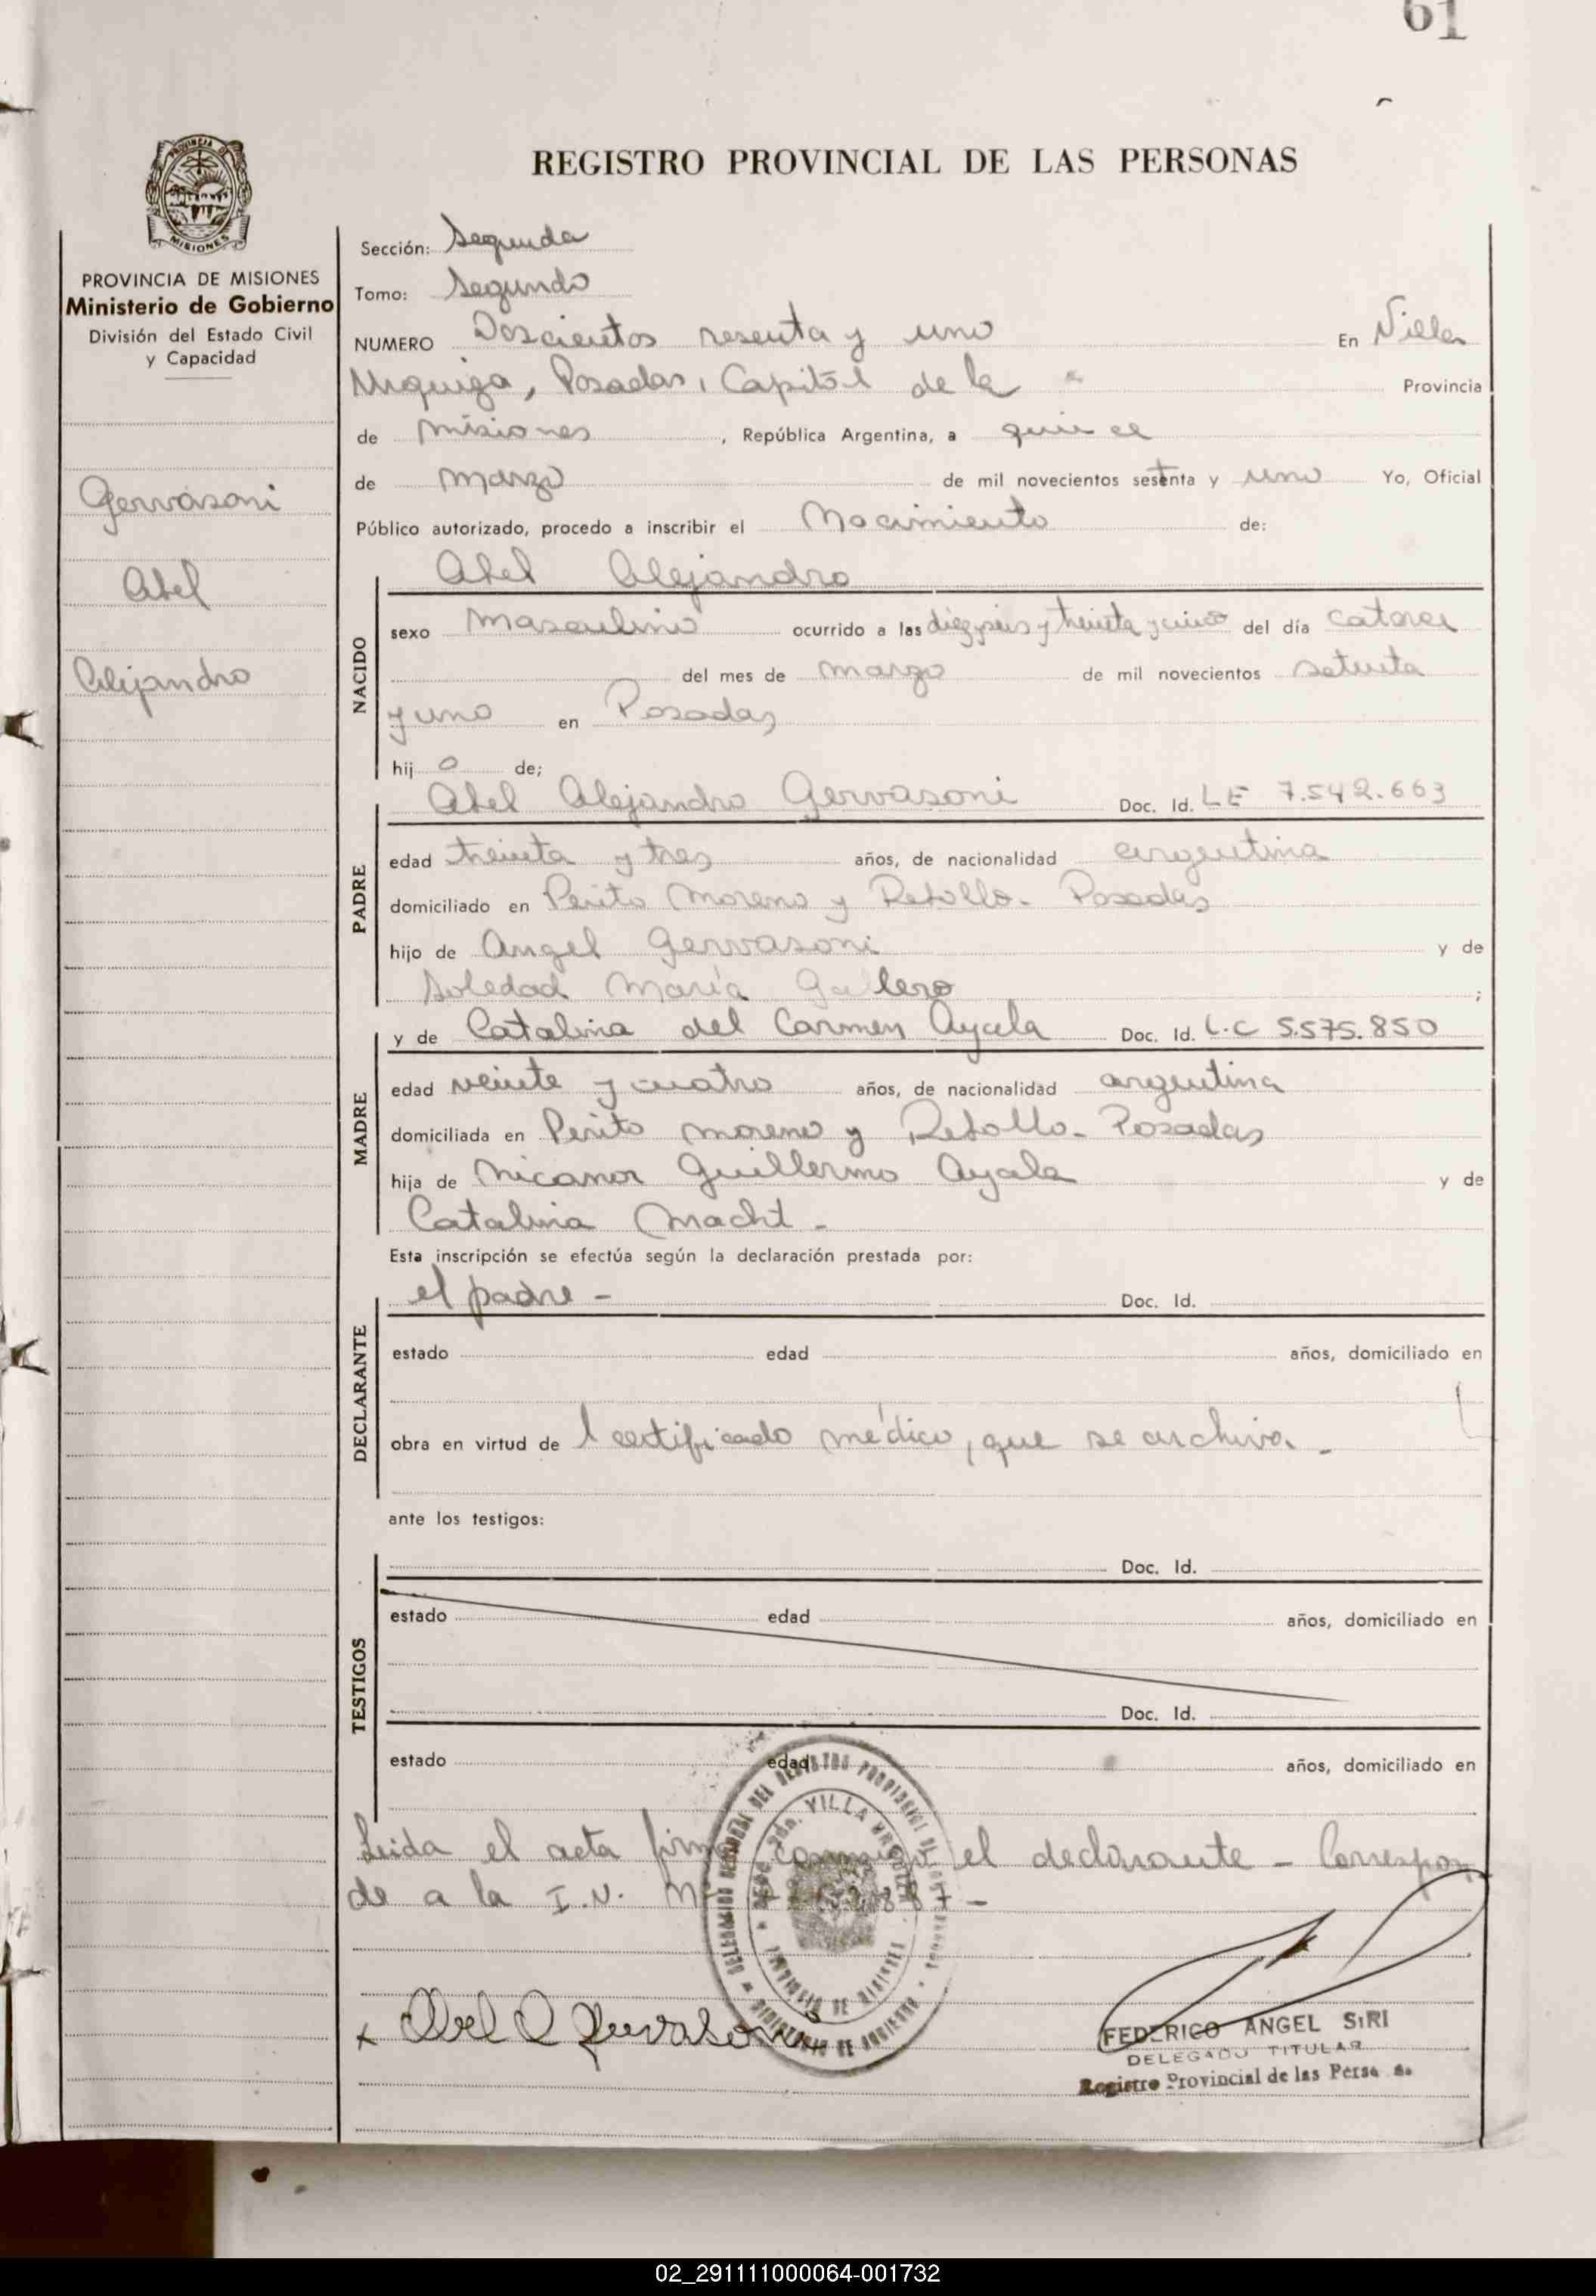 61
REGISTRO PROVINCIAL DE LAS PERSONAS
PROVINCIA DE MISIONES
PROVINCIA DE MISIONES
Ministerio de Gobierno
División del Estado Civil
y Capacidad
Gervasoni
Abel
Alejandro
Sección: Segunda
Tomo: Segundo
NUMERO Doscientos sesenta y uno En Villa
Urquiza, Posadas, Capital de la Provincia
de Misiones, República Argentina, a quince
de marzo de mil novecientos setenta y uno Yo, Oficial
Público autorizado, procedo a inscribir el Nacimiento de:
Abel Alejandro
NACIDO
sexo Masculino ocurrido a las diez y seis y treinta y cinco del día catorce
del mes de marzo de mil novecientos setenta
y uno en Posadas
hij o de;
Abel Alejandro Gervasoni Doc. Id. LE 7.542.663
PADRE
edad treinta y tres años, de nacionalidad argentina
domiciliado en Perito Moreno y Rebollo - Posadas
hijo de Angel Gervasoni y de
Soledad María Gallero ;
y de Catalina del Carmen Ayala Doc. Id. L.C 5.575.850
MADRE
edad veinte y cuatro años, de nacionalidad argentina
domiciliada en Perito Moreno y Rebollo - Posadas
hija de Nicanor Guillermo Ayala y de
Catalina Macht -
Esta inscripción se efectúa según la declaración prestada por:
el padre - Doc. Id.
DECLARANTE
estado edad años, domiciliado en
obra en virtud de l certificado médico, que se archiva -
ante los testigos:
Doc. Id.
TESTIGOS
estado edad años, domiciliado en
Doc. Id.
estado edad años, domiciliado en
Leida el acta firma conmigo el declarante - Correspon
de a la I.N. Nº
Abel A Gervasoni
FEDERICO ANGEL SIRI
DELEGADO TITULAR
Registro Provincial de las Personas
02_291111000064-001732